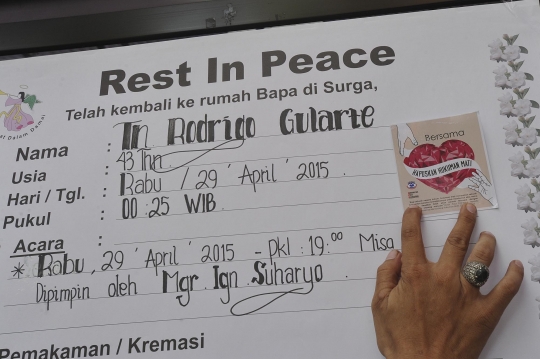 Rest In Peace
Telah kembali ke rumah Bapa di Surga,
Nama : Tn Rodrigo Gularte
Usia : 43 Thn
Hari / Tgl. : Rabu / 29 'April ' 2015 .
Pukul : 00 : 25 WIB
Acara :
* Rabu, 29 'April ' 2015 - Pkl : 19:00 Misa
Dipimpin oleh Mgr. Ign. Suharyo .
Pemakaman / Kremasi
Bersama
HAPUSKAN HUKUMAN MATI